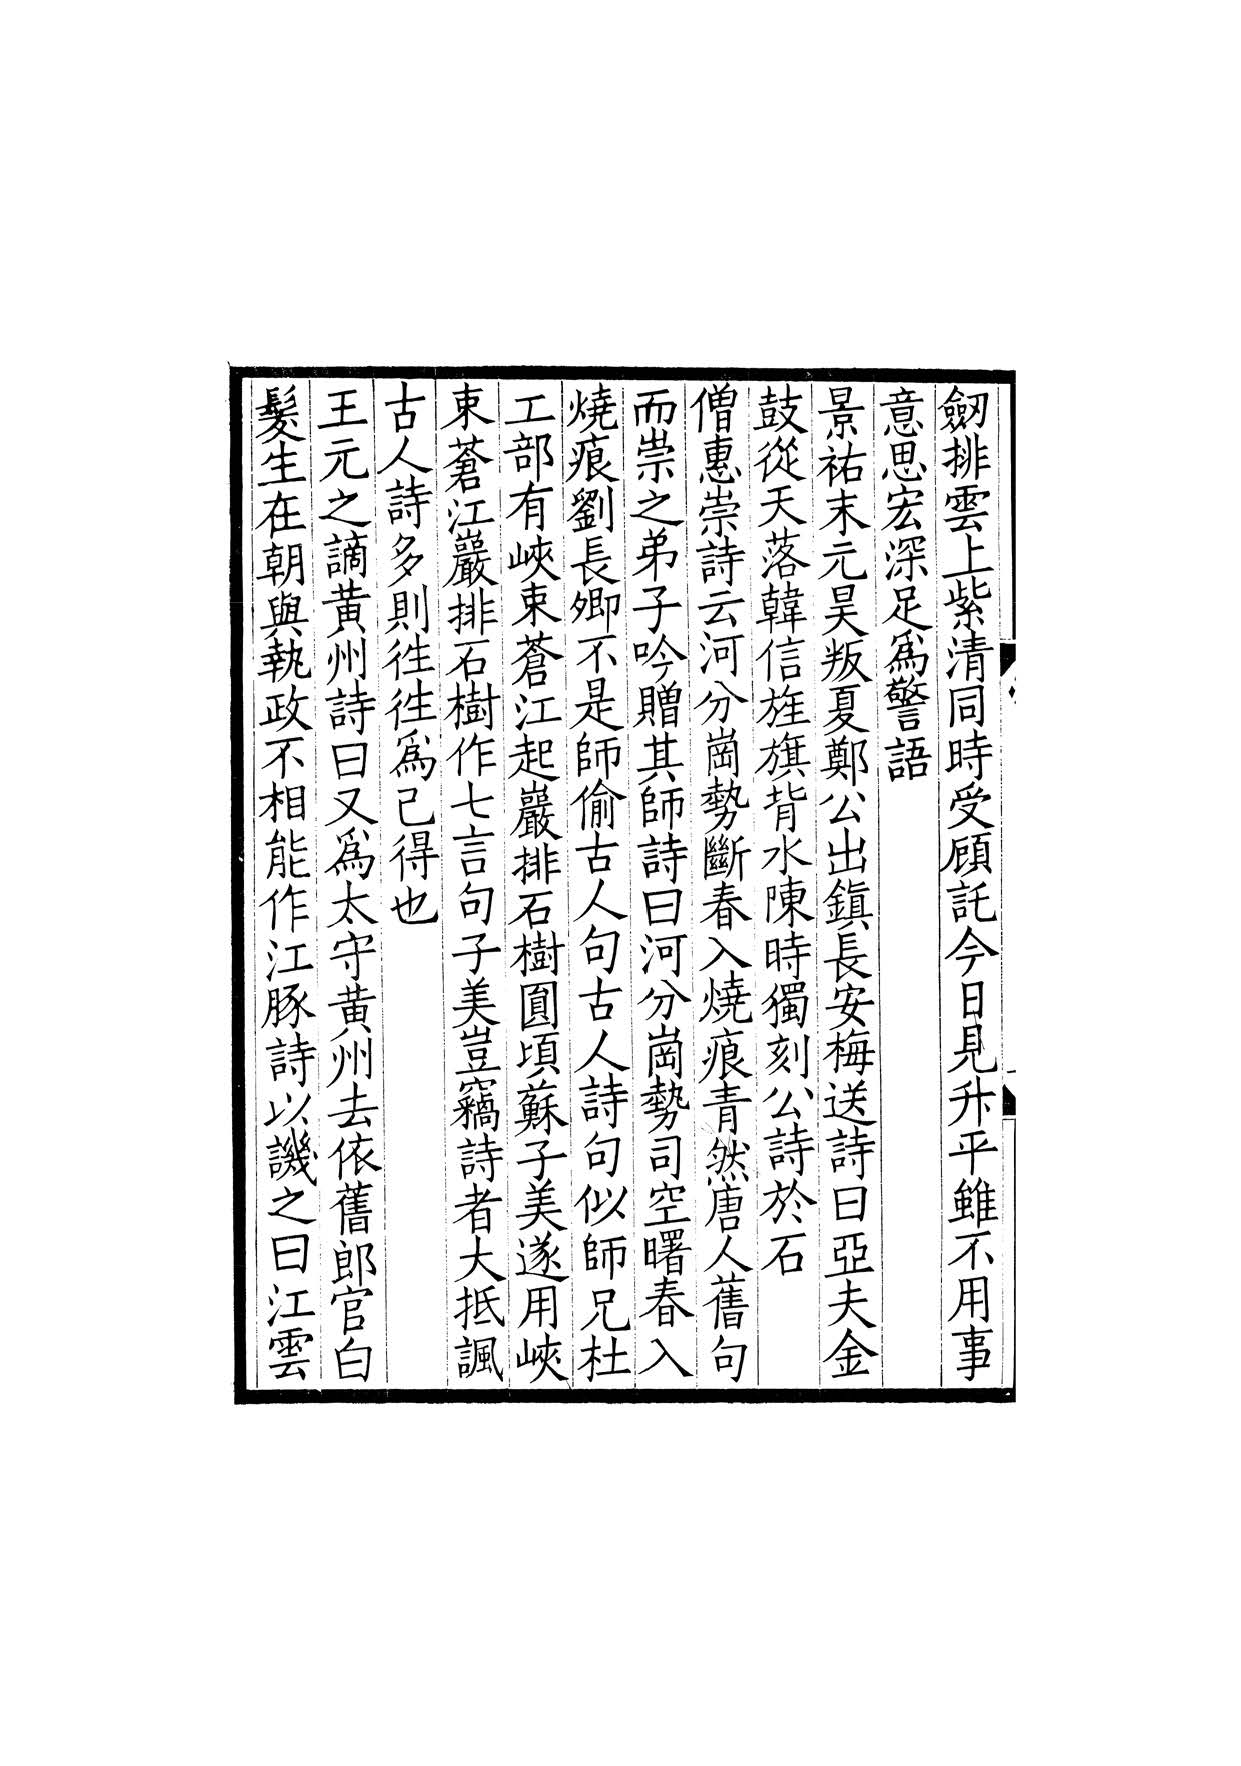 劒排雲上紫清同時受顧託今日見升平雖不用事
意思宏深足爲警語
景祐末元昊叛夏鄭公出鎮長安梅送詩曰亞夫金
鼓從天落韓信旌旗背水陳時獨刻公詩於石
僧惠崇詩云河分崗勢斷春入燒痕青然唐人舊句
而崇之弟子吟贈其師詩曰河分崗勢司空曙春入
燒痕劉長卿不是師偷古人句古人詩句似師兄杜
工部有峽束蒼江起巖排石樹圓頃蘇子美遂用峽
束蒼江巖排石樹作七言句子美豈竊詩者大抵諷
古人詩多則徃徃爲己得也
王元之謫黃州詩曰又爲太守黃州去依舊郎官白
髮生在朝與執政不相能作江豚詩以譏之曰江雲